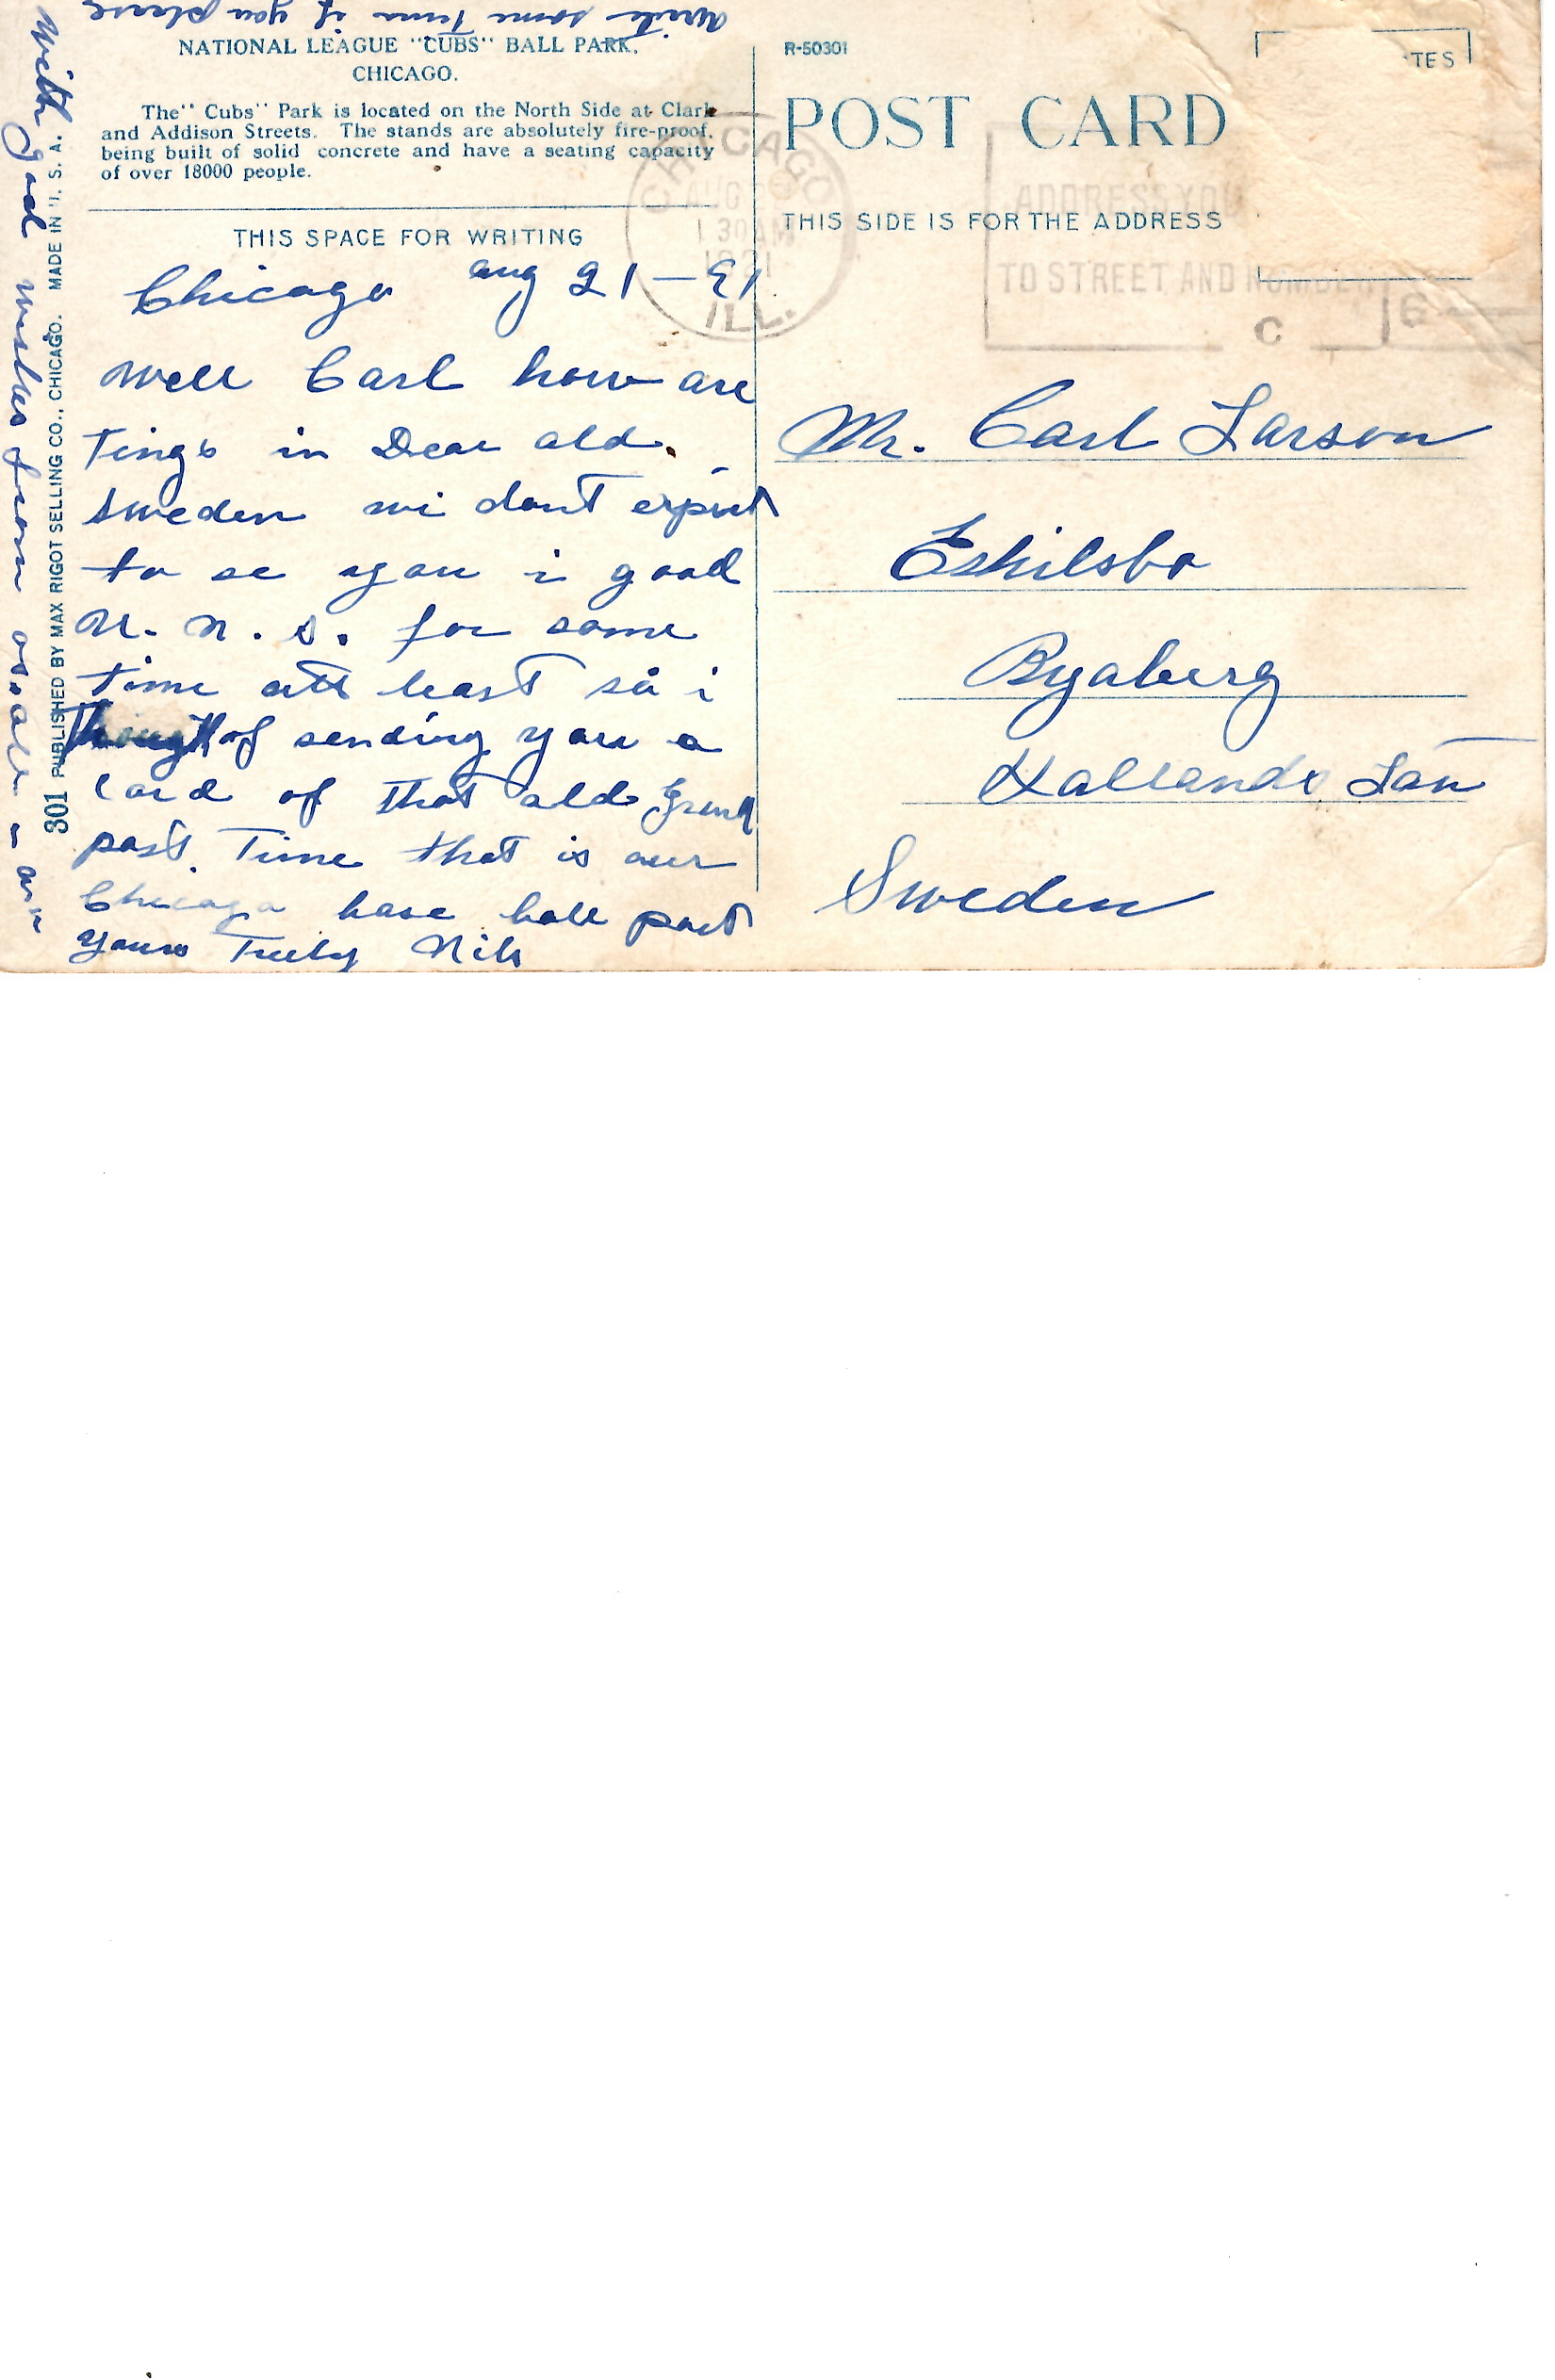 write some time if you please
NATIONAL LEAGUE "CUBS" BALL PARK,
CHICAGO.
The" Cubs" Park is located on the North Side at Clark
and Addison Streets. The stands are absolutely fire-proof,
being built of solid concrete and have a seating capacity
of over 18000 people.
THIS SPACE FOR WRITING
Chicago aug 21 – 21
Well Carl how are
tings in Dear old
Sweden wi dont expect
to se you i good
U. N. S. for some
time att least så i
Thought of sending you a
card of that old Grand
past Time that is our
Chicago base ball park
yours Truly Nils
With god wishes from os. all
301 PUBLISHED BY MAX RIGOT SELLING CO., CHICAGO. MADE IN U. S. A.
R-50301
TES
POST CARD
THIS SIDE IS FOR THE ADDRESS
CHICAGO
AUG
1 30 AM
1921
ILL.
ADDRESS YOU
TO STREET AND NUMBER
C
6
Mr. Carl Larson
Eskilsbo
Ryaberg
Hallands Län
Sweden